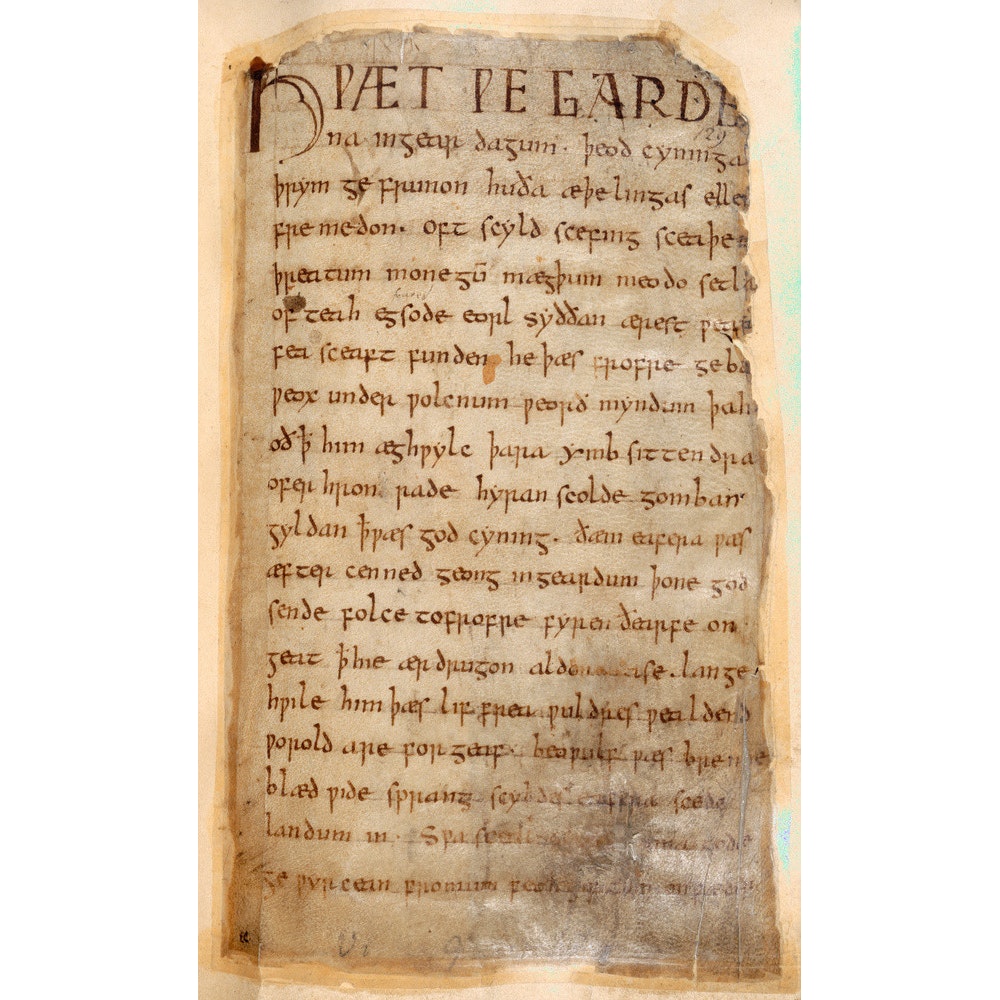 HǷÆT ǷE GARDE
na ingear dagum. þeod cyninga
þrym ge frunon huða æþelingas elle
fre medon. oft scyld scefing sceaþe
þreatum monegū mægþum meodo setla
of teah egsode eorl syððan ærest ƿear
fea sceaft funden he þæs frofre geba
ƿeox under ƿolcnum ƿeorð myndum þah
oð þ̄ him æghƿylc þara ymb sittendra
ofer hron rade hyran scolde gomban
gyldan þ̄ ƿæs god cyning. ðæm eafera ƿæs
æfter cenned geong ingeardum þone god
sende folce tofrofre fyren ðearfe on
geat þ̄ hie ær drugon aldor ase. lange
hƿile him þæs lif frea ƿuldres ƿealdend
ƿorold are forgeaf. beoƿulf ƿæs breme
blæd ƿide sprang scyldes eafera scede
landum in. Sƿa sceal gode
ge ƿyrcean fromum feoh giftum
129